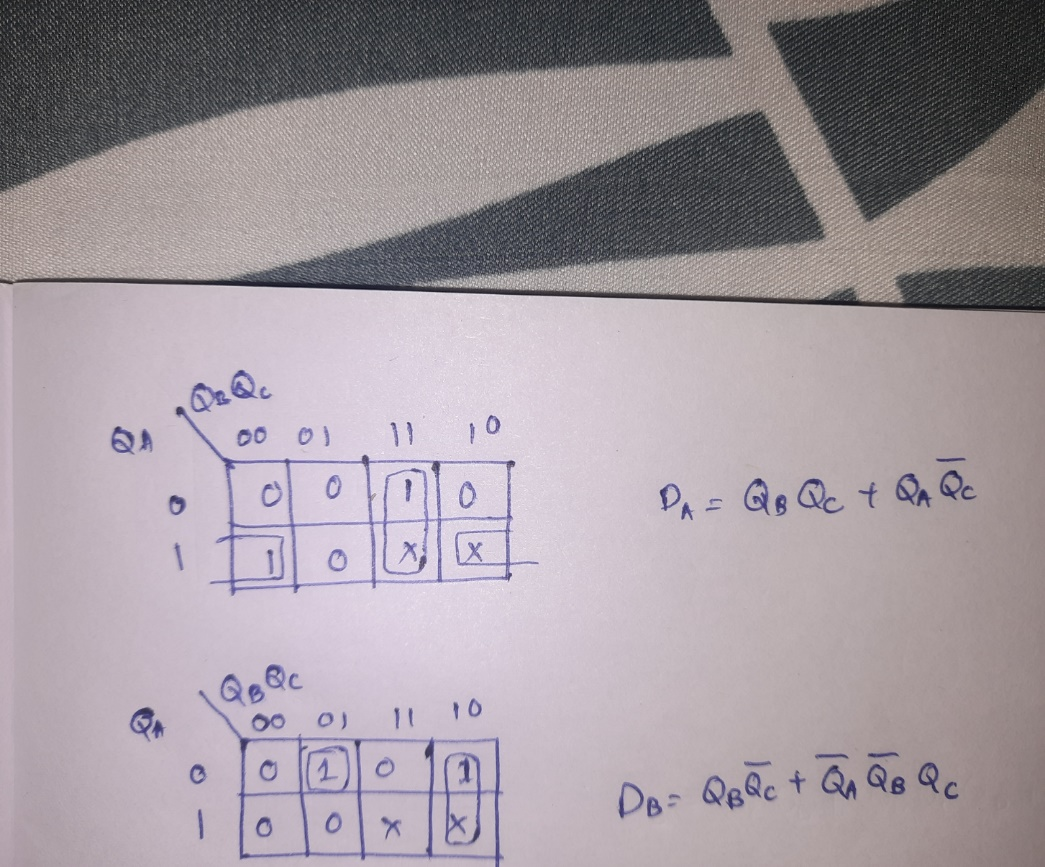 QBQC
QA 00 01 11 10
0 0 0 1 0
1 1 0 X X
DA = QB QC + QA Q̅C
QBQC
QA 00 01 11 10
0 0 1 0 1
1 0 0 X X
DB = QB Q̅C + Q̅A Q̅B QC